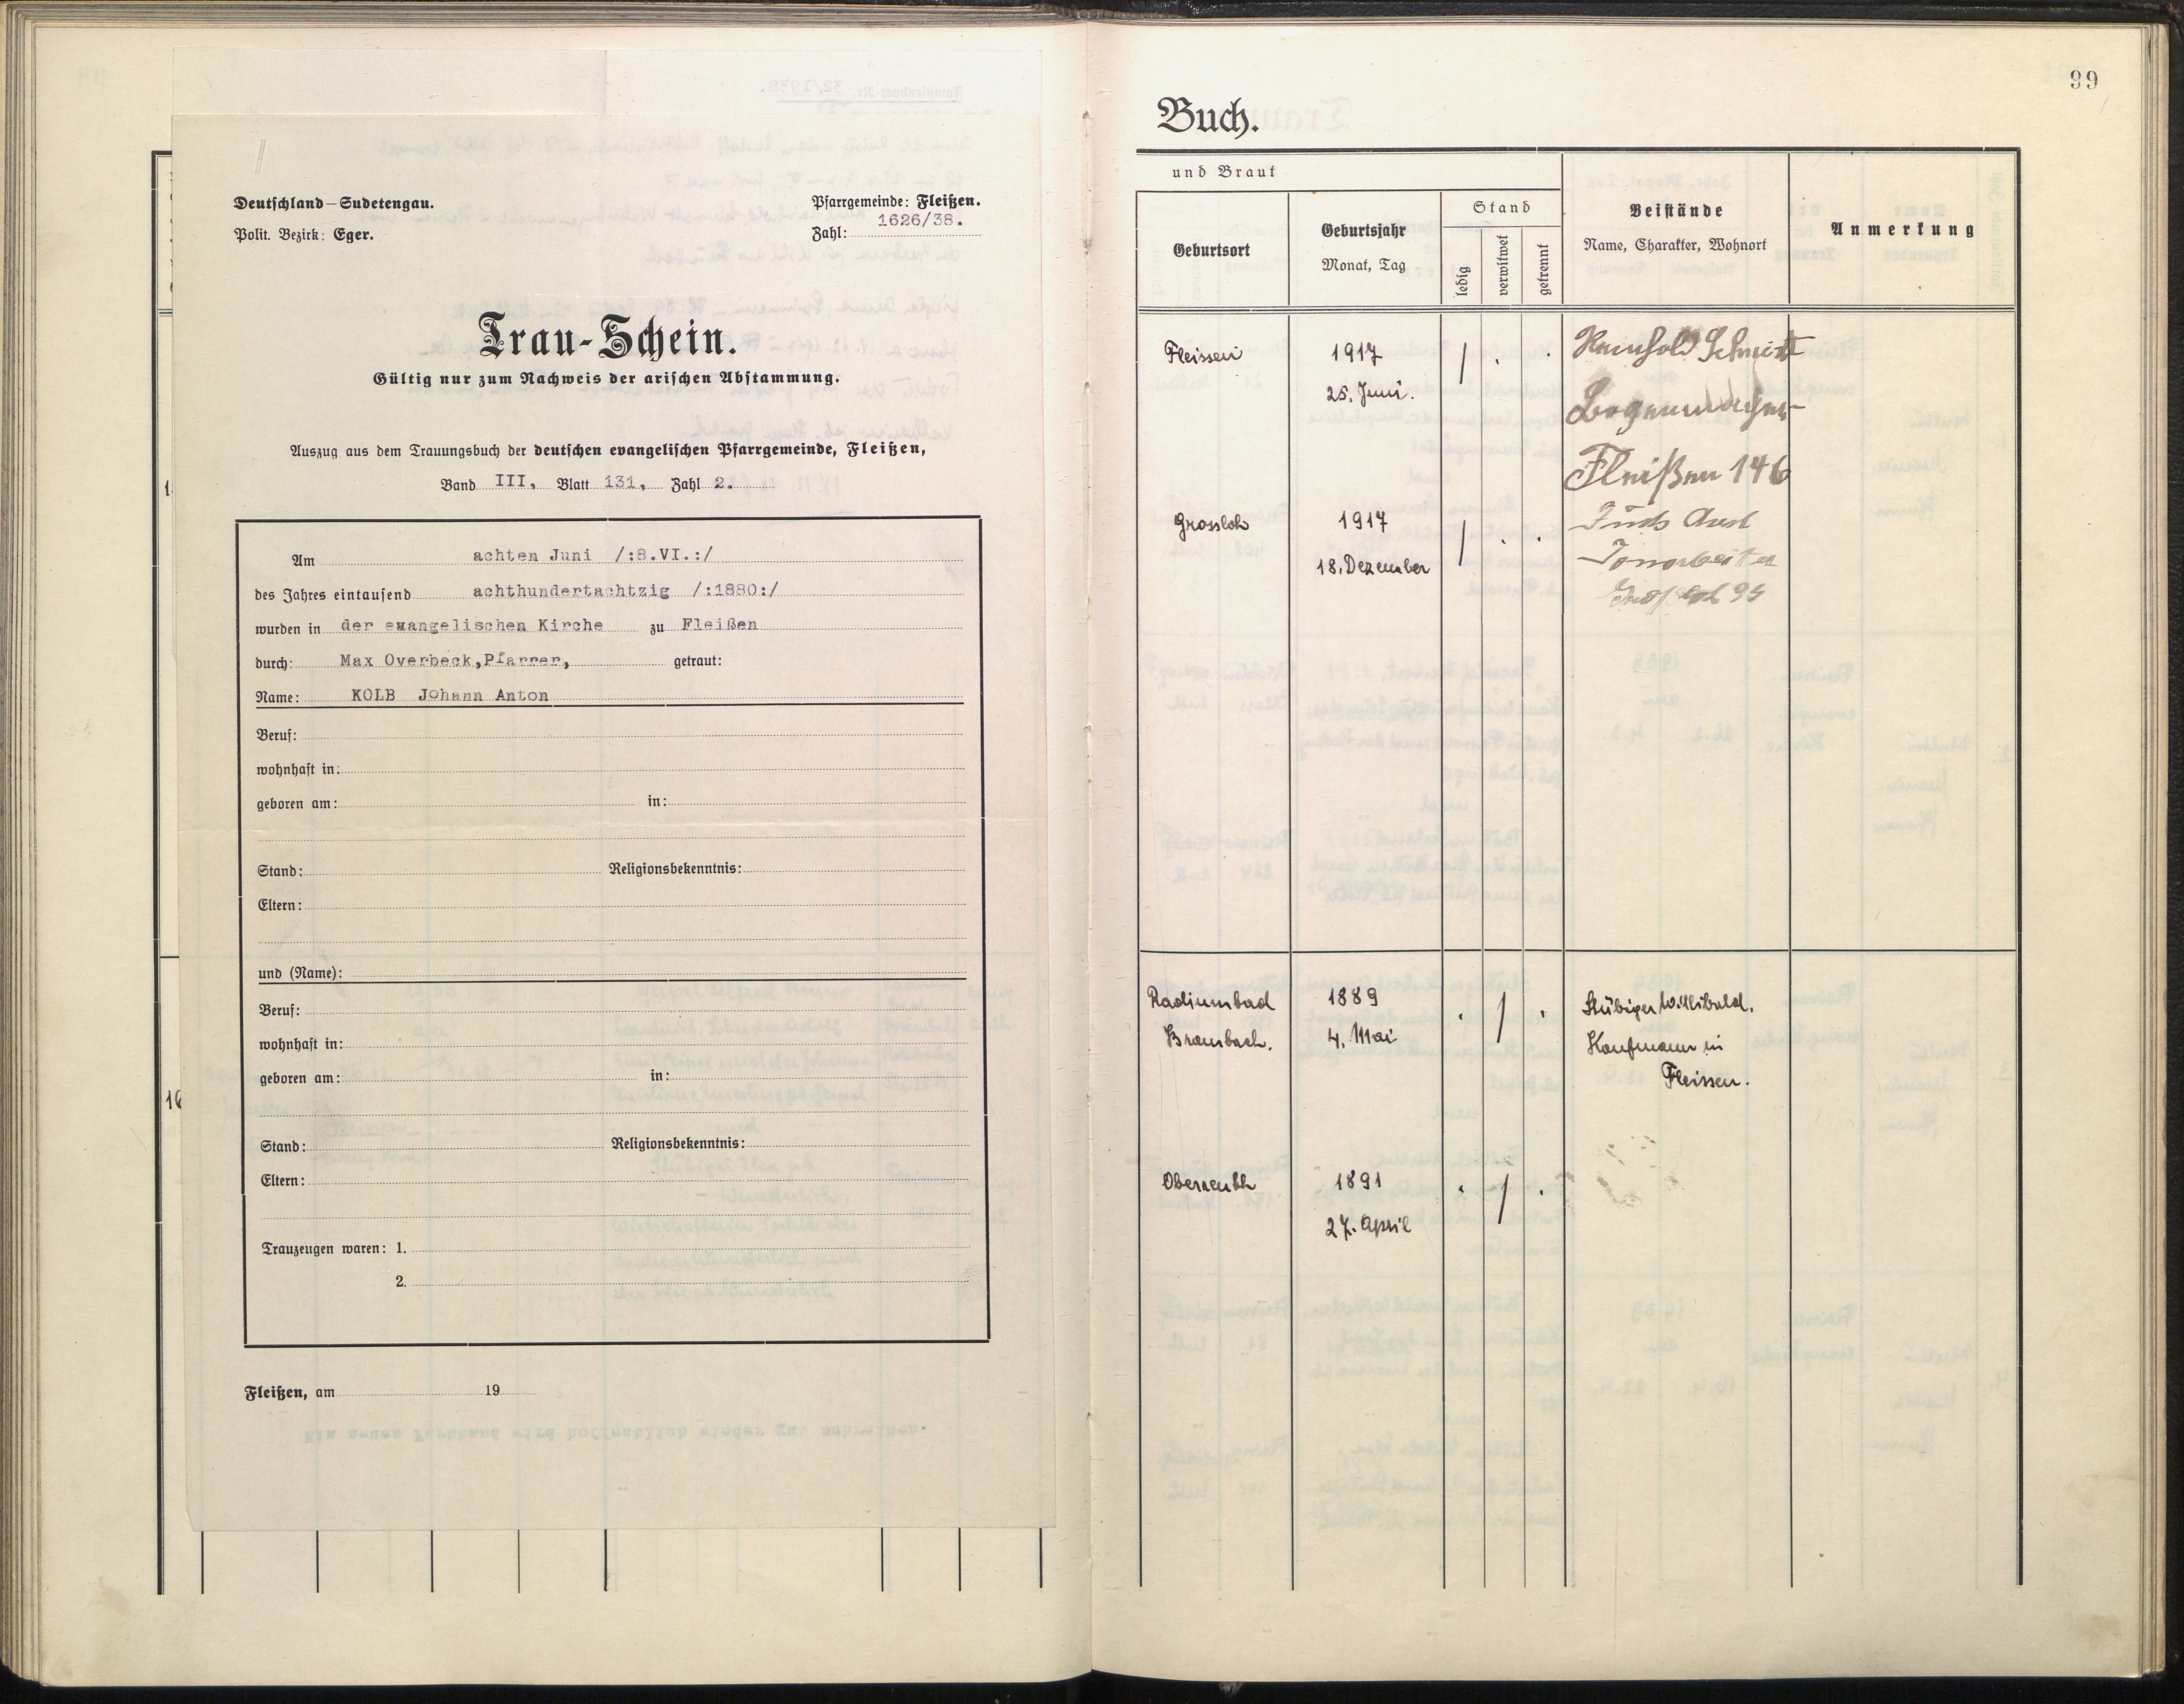 Deutschland—Sudetengau.
Polit. Bezirk: Eger.
Pfarrgemeinde: Fleißen.
Zahl: 1626/38.
Trau-Schein.
Gültig nur zum Nachweis der arischen Abstammung.
Auszug aus dem Trauungsbuch der deutschen evangelischen Pfarrgemeinde, Fleißen,
Band III, Blatt 131, Zahl 2.
Am achten Juni /:8.VI.:/
des Jahres eintausend achthundertachtzig /:1880:/
wurden in der evangelischen Kirche zu Fleißen
durch: Max Overbeck, Pfarrer, getraut:
Name: KOLB Johann Anton
Beruf:
wohnhaft in:
geboren am: in:
Stand: Religionsbekenntnis:
Eltern:
und (Name):
Beruf:
wohnhaft in:
geboren am: in:
Stand: Religionsbekenntnis:
Eltern:
Trauzeugen waren: 1.
2.
Fleißen, am 19
16
99
Buch.
und Braut
Geburtsort
Geburtsjahr
Monat, Tag
Stand
ledig
verwitwet
getrennt
Beistände
Name, Charakter, Wohnort
Anmerkung
Fleissen
1917
25. Juni.
Reinhold Schmidt
Bogenmacher
Fleißen 146
Grossloh
1917
18. Dezember
Tonarbeiter
Radiumbad
Brambach.
1889
4. Mai
Stübiger Willibald.
Kaufmann in
Fleissen.
Oberreuth
1891
27. April